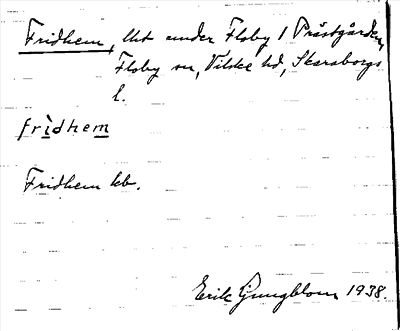 Fridhem, lht under Floby 1 Prästgården,
Floby sn, Vilske hd, Skaraborgs
l.
fridhem
Fridhem kb.
Erik Ljungblom 1938.